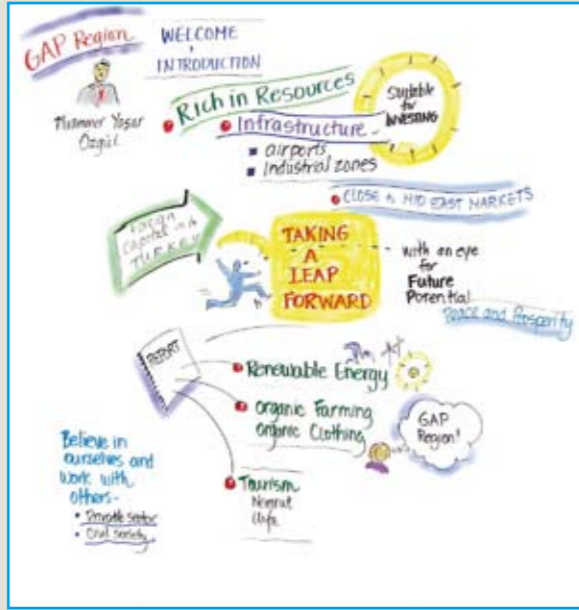 GAP Region
WELCOME
+
INTRODUCTION
Muammer Yaşar
Özgül
Rich in Resources
Infrastructure
airports
industrial zones
Suitable
for
INVESTING
CLOSE to MID EAST MARKETS
Foreign
Capital in
TURKEY
TAKING
A
LEAP
FORWARD
with an eye
for
Future
Potential
Peace and Prosperity
REPORT
Renewable Energy
Organic Farming
organic Clothing
GAP
Region!
Tourism
Nemrut
Urfa
Believe in
ourselves and
work with
others-
Private sector
Civil society